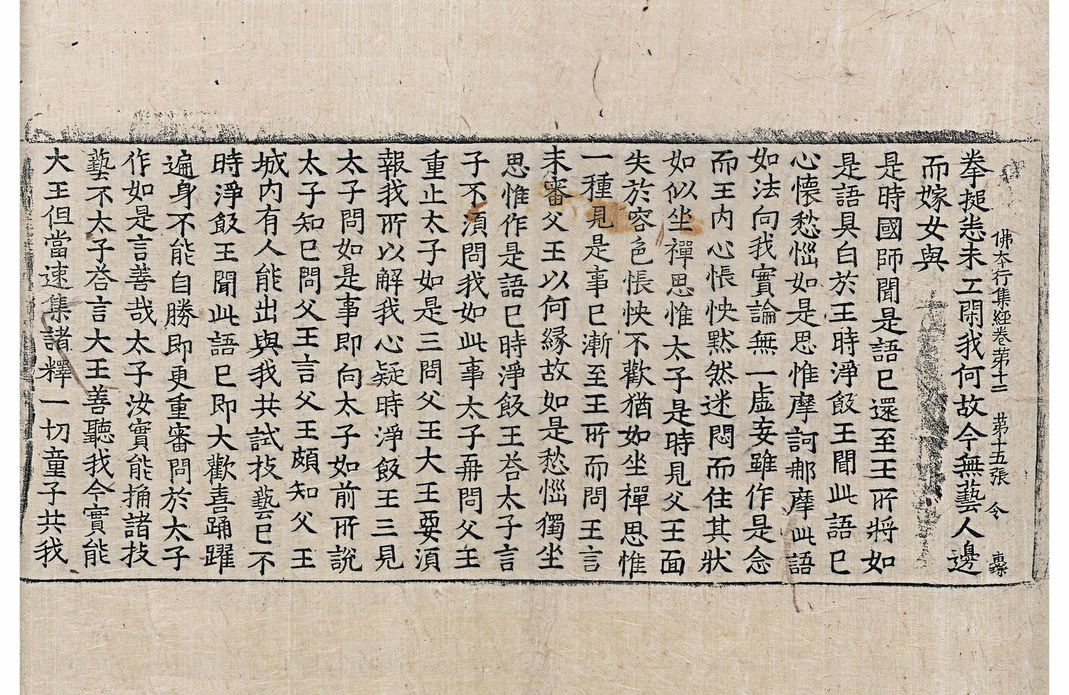 佛本行集經卷第十二 第十五張 令
拳搥悉未工閑我何故今無藝人邊
而嫁女與
是時國師聞是語已還至王所將如
是語具白於王時淨飯王聞此語已
心懷愁惱如是思惟摩訶那摩此語
如法向我實論無一虛妄雖作是念
而王內心悵怏默然迷悶而住其狀
如似坐禪思惟太子是時見父王面
失於容色悵怏不歡猶如坐禪思惟
一種見是事已漸至王所而問王言
未審父王以何緣故如是愁惱獨坐
思惟作是語已時淨飯王荅太子言
子不須問我如此事太子再問父王
重止太子如是三問父王大王要須
報我所以解我心疑時淨飯王三見
太子問如是事即向太子如前所說
太子知已問父王言父王頗知父王
城內有人能出與我共試技藝已不
時淨飯王聞此語已即大歡喜踊躍
遍身不能自勝即更重審問於太子
作如是言善哉太子汝實能捔諸技
藝不太子荅言大王善聽我今實能
大王但當速集諸釋一切童子共我